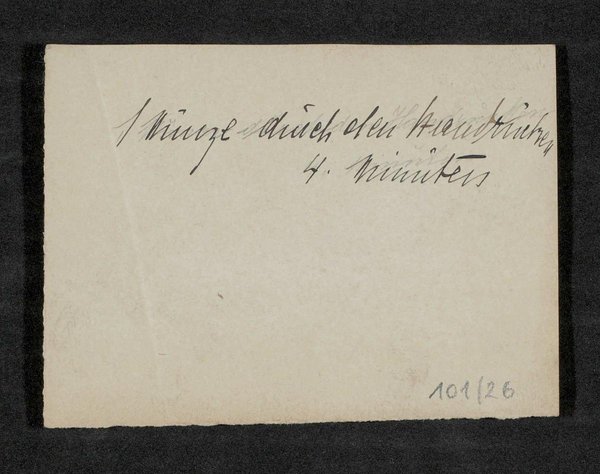 1 Münze durch den Handrücken
4. Minuten
101/26